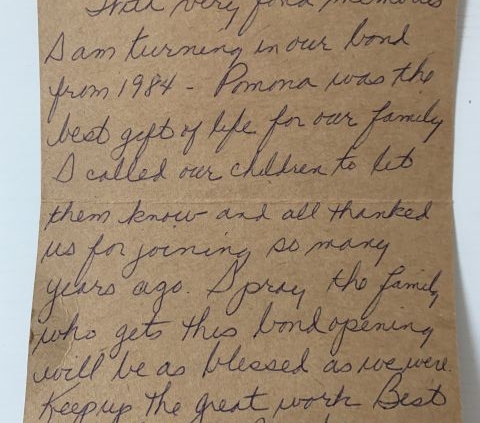 With very fond memories
I am turning in our bond
from 1984 - Pomona was the
best gift of life for our family
I called our children to let
them know and all thanked
us for joining so many
years ago. I pray the family
who gets this bond opening
will be as blessed as we were.
Keep up the great work Best